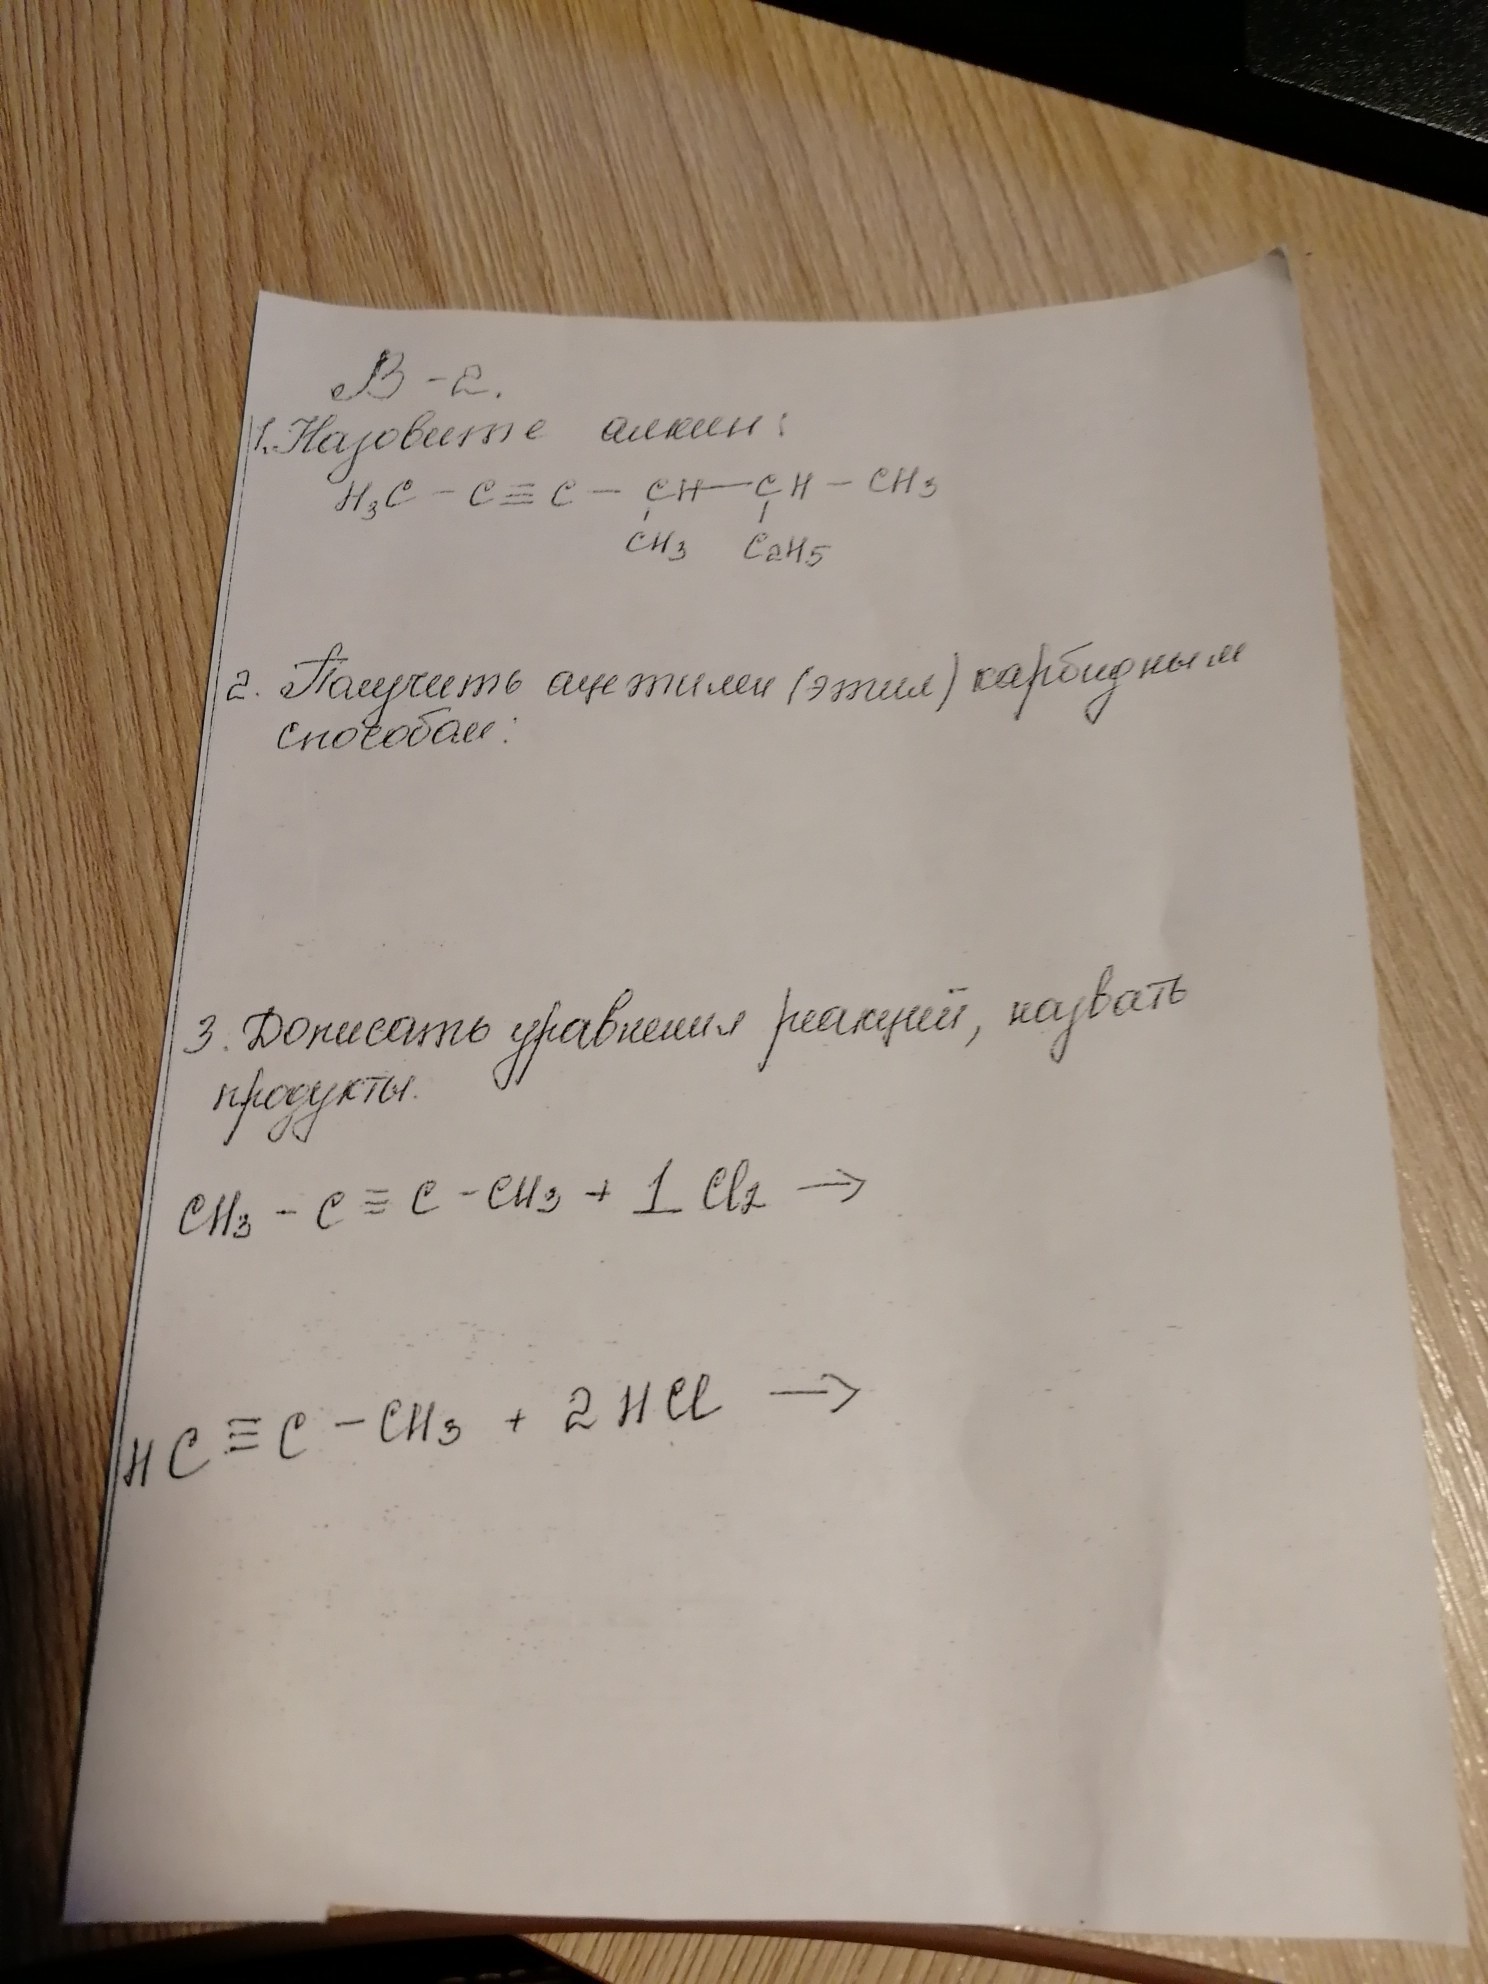 В-2.
1. Назовите алкин:
H3C - C ≡ C - CH - CH - CH3
CH3 C2H5
2. Получить ацетилен (этил) карбидным
способом:
3. Дописать уравнения реакций, назвать
продукты.
CH3 - C ≡ C - CH3 + 1 Cl2 →
HC ≡ C - CH3 + 2 HCl →